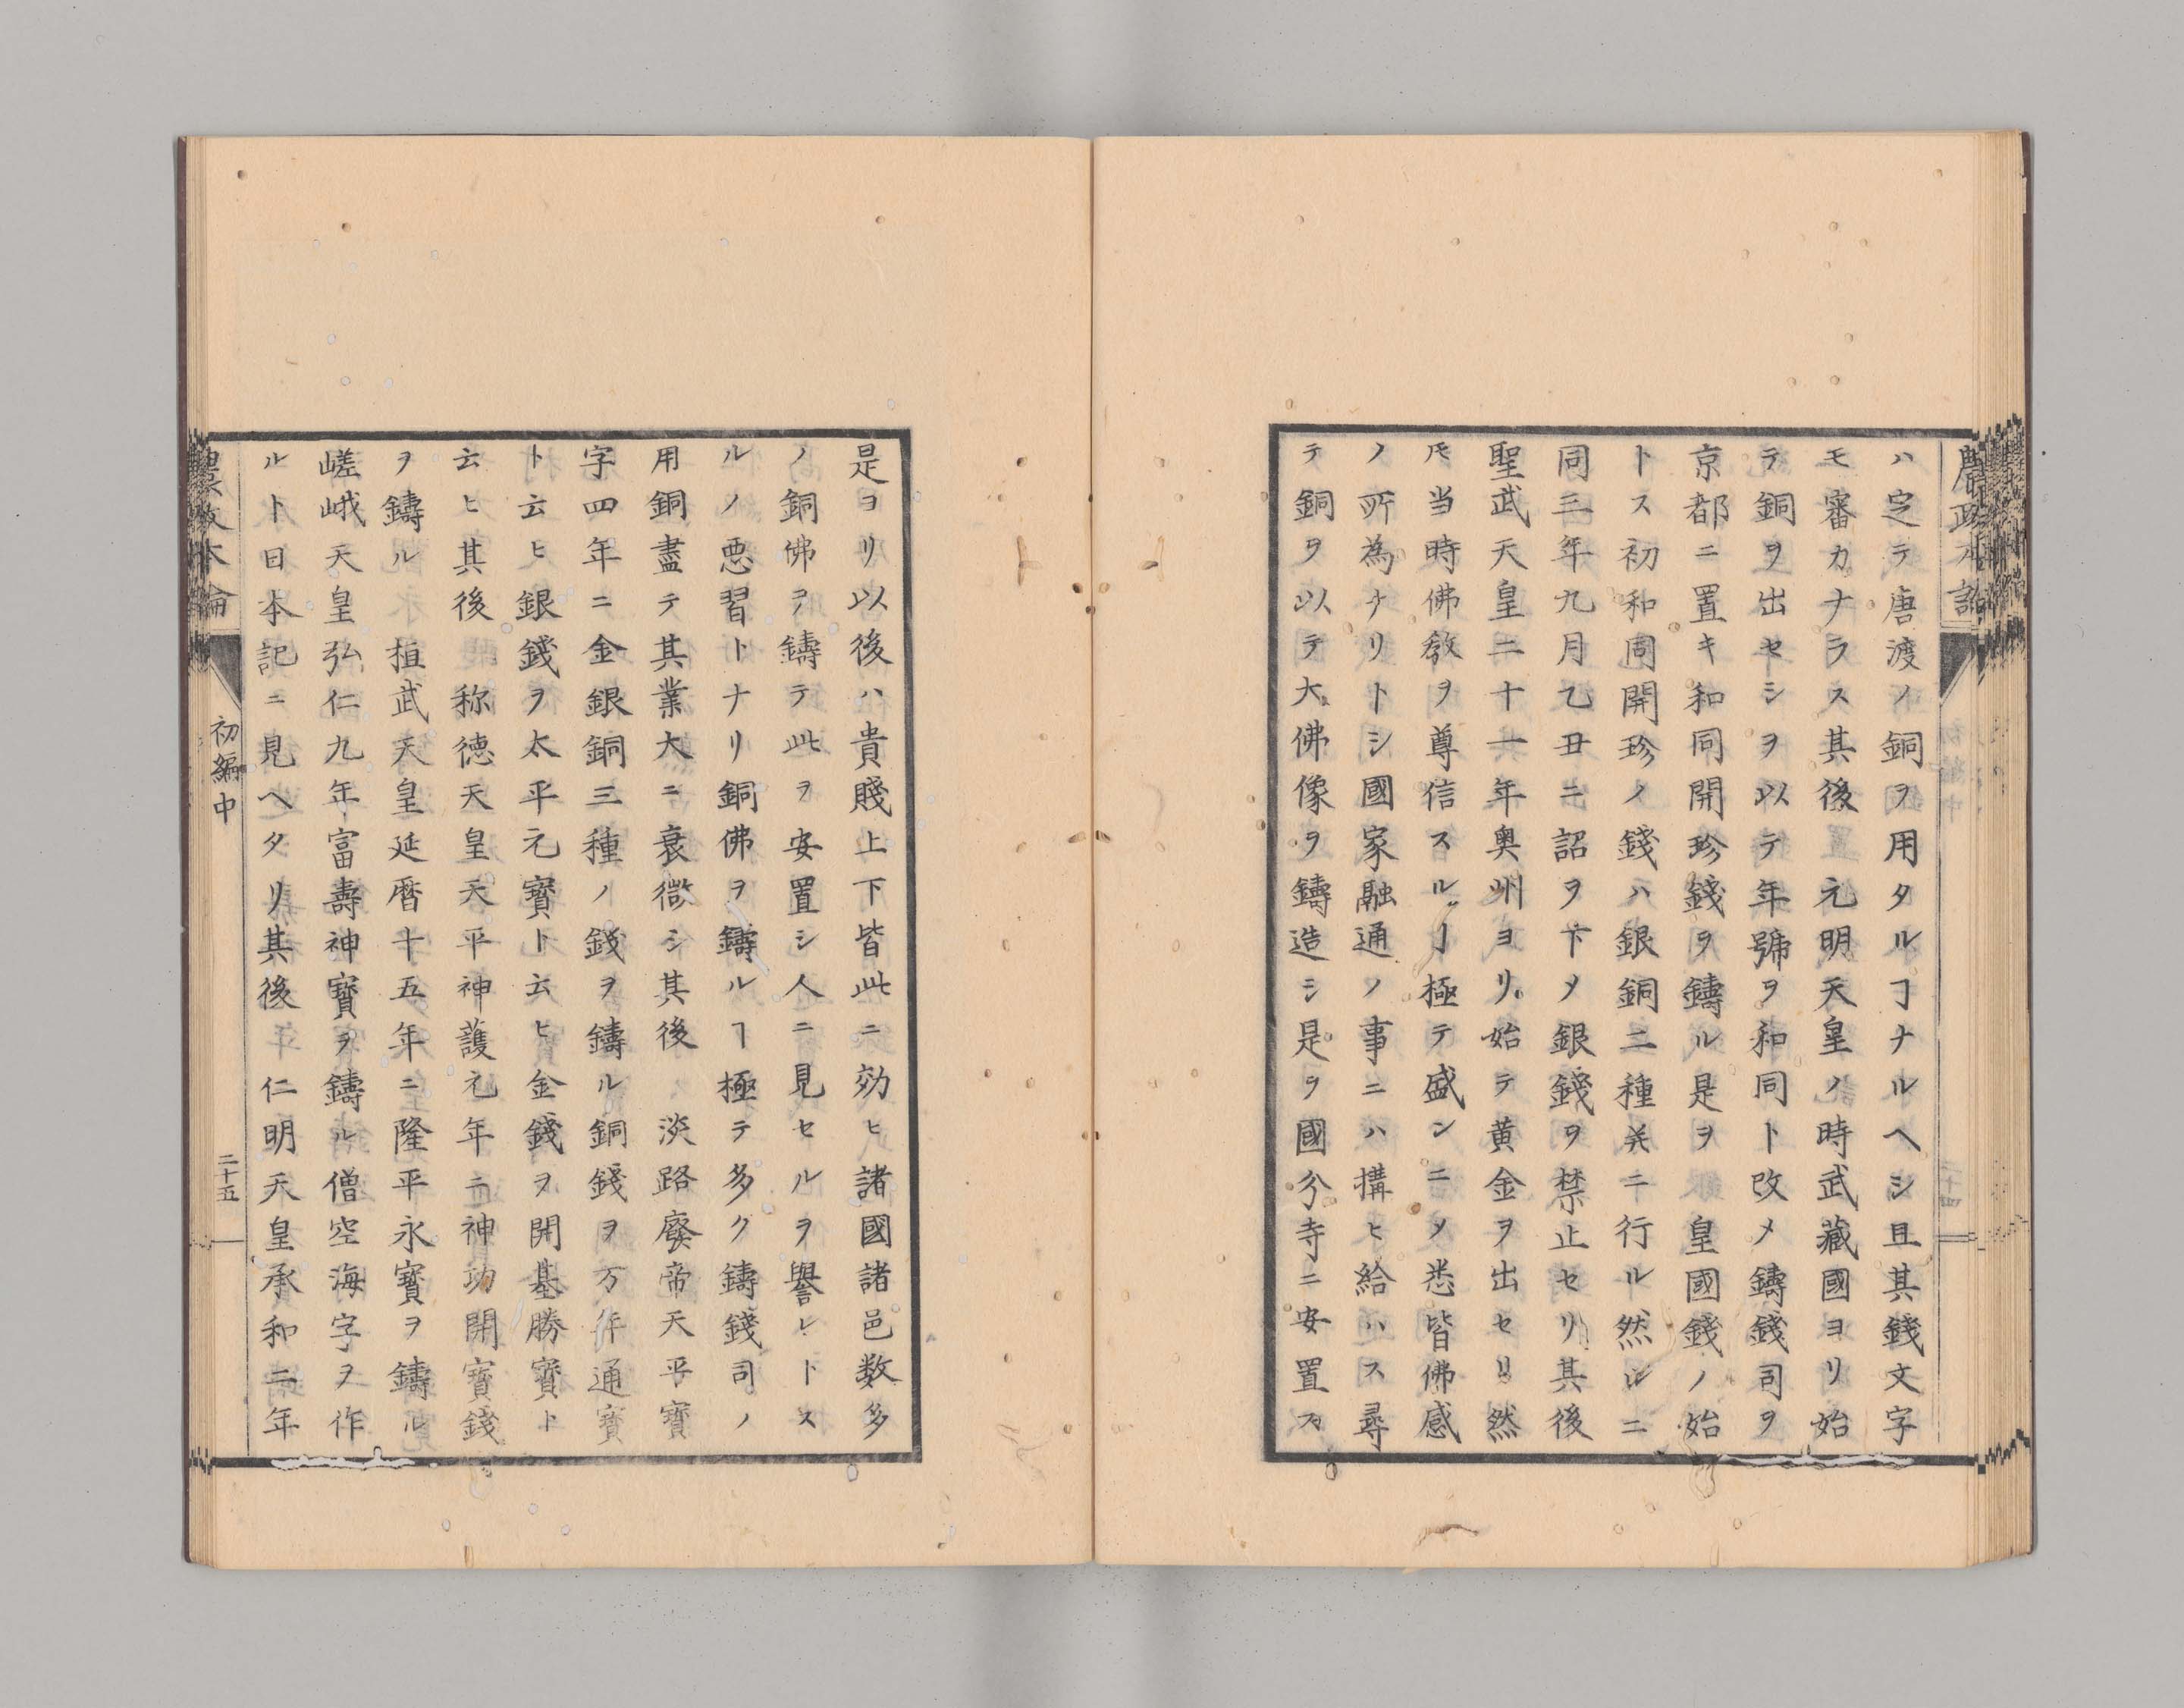 農政本論
ハ定テ唐渡ノ銅ヲ用タルヿナルヘシ且其錢文字
モ審カナラス其後元明天皇ノ時武藏國ヨリ始
テ銅ヲ出セシヲ以テ年號ヲ和同ト改メ鑄錢司ヲ
京都ニ置キ和同開珍錢ヲ鑄ル是ヲ皇國錢ノ始
トス初和同開珍ノ錢ハ銀銅二種㒰ニ行ル然ルニ
同三年九月乙丑ニ詔ヲ下メ銀錢ヲ禁止セリ其後
聖武天皇二十一年奥州ヨリ始テ黄金ヲ出セリ然
𪜈当時佛教ヲ尊信スルヿ極テ盛ンニメ悉皆佛感
ノ所為ナリトシ國家融通ノ事ニハ構ヒ給ハス尋
テ銅ヲ以テ大佛像ヲ鑄造シ是ヲ國分寺ニ安置ス
是ヨリ以後ハ貴賤上下皆此ニ効ヒ諸國諸邑数多
ノ銅佛ヲ鑄テ此ヲ安置シ人ニ見セルヲ譽レトス
ルノ悪習トナリ銅佛ヲ鑄ルヿ極テ多ク鑄錢司ノ
用銅盡テ其業大ニ衰微シ其後淡路廢帝天平寳
字四年ニ金銀銅三種ノ錢ヲ鑄ル銅錢ヲ万年通寳
ト云ヒ銀錢ヲ太平元寳ト云ヒ金錢ヲ開基勝寳ト
云ヒ其後称徳天皇天平神護元年ニ神功開寳錢
ヲ鑄ル桓武天皇延暦十五年ニ隆平永寳ヲ鑄ル
嵯峨天皇弘仁九年富壽神寳ヲ鑄ル僧空海字ヲ作
ルト日本記ニ見ヘタリ其後仁明天皇承和二年
農政本論
初編中
二十五